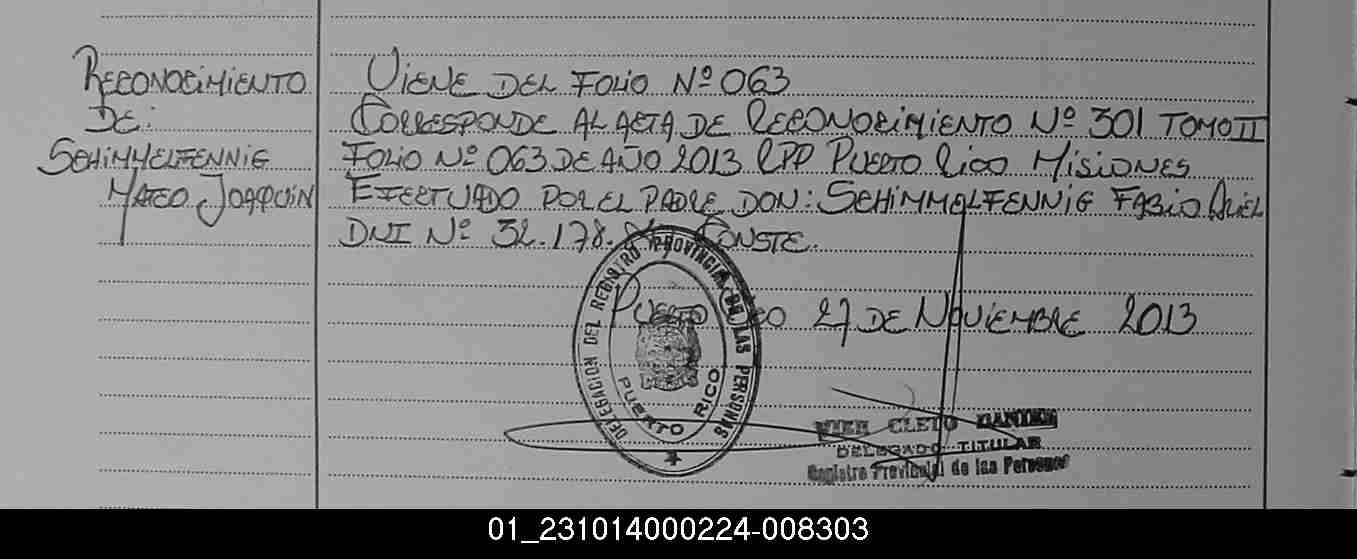 RECONOCIMIENTO
DE:
SCHIMMELFENNIG
MATEO JOAQUIN
VIENE DEL FOLIO Nº 063
CORRESPONDE AL ACTA DE RECONOCIMIENTO Nº 301 TOMO II
FOLIO Nº 063 DE AÑO 2013 RPP PUERTO RICO MISIONES
EFECTUADO POR EL PADRE DON: SCHIMMELFENNIG FABIO ARIEL
DNI Nº 32.178. CONSTE.
PUERTO RICO 27 DE NOVIEMBRE 2013
DELEGACION DEL REGISTRO PROVINCIAL DE LAS PERSONAS
PUERTO RICO
CLETO
DELEGADO TITULAR
Registro Provincial de las Personas
01_231014000224-008303